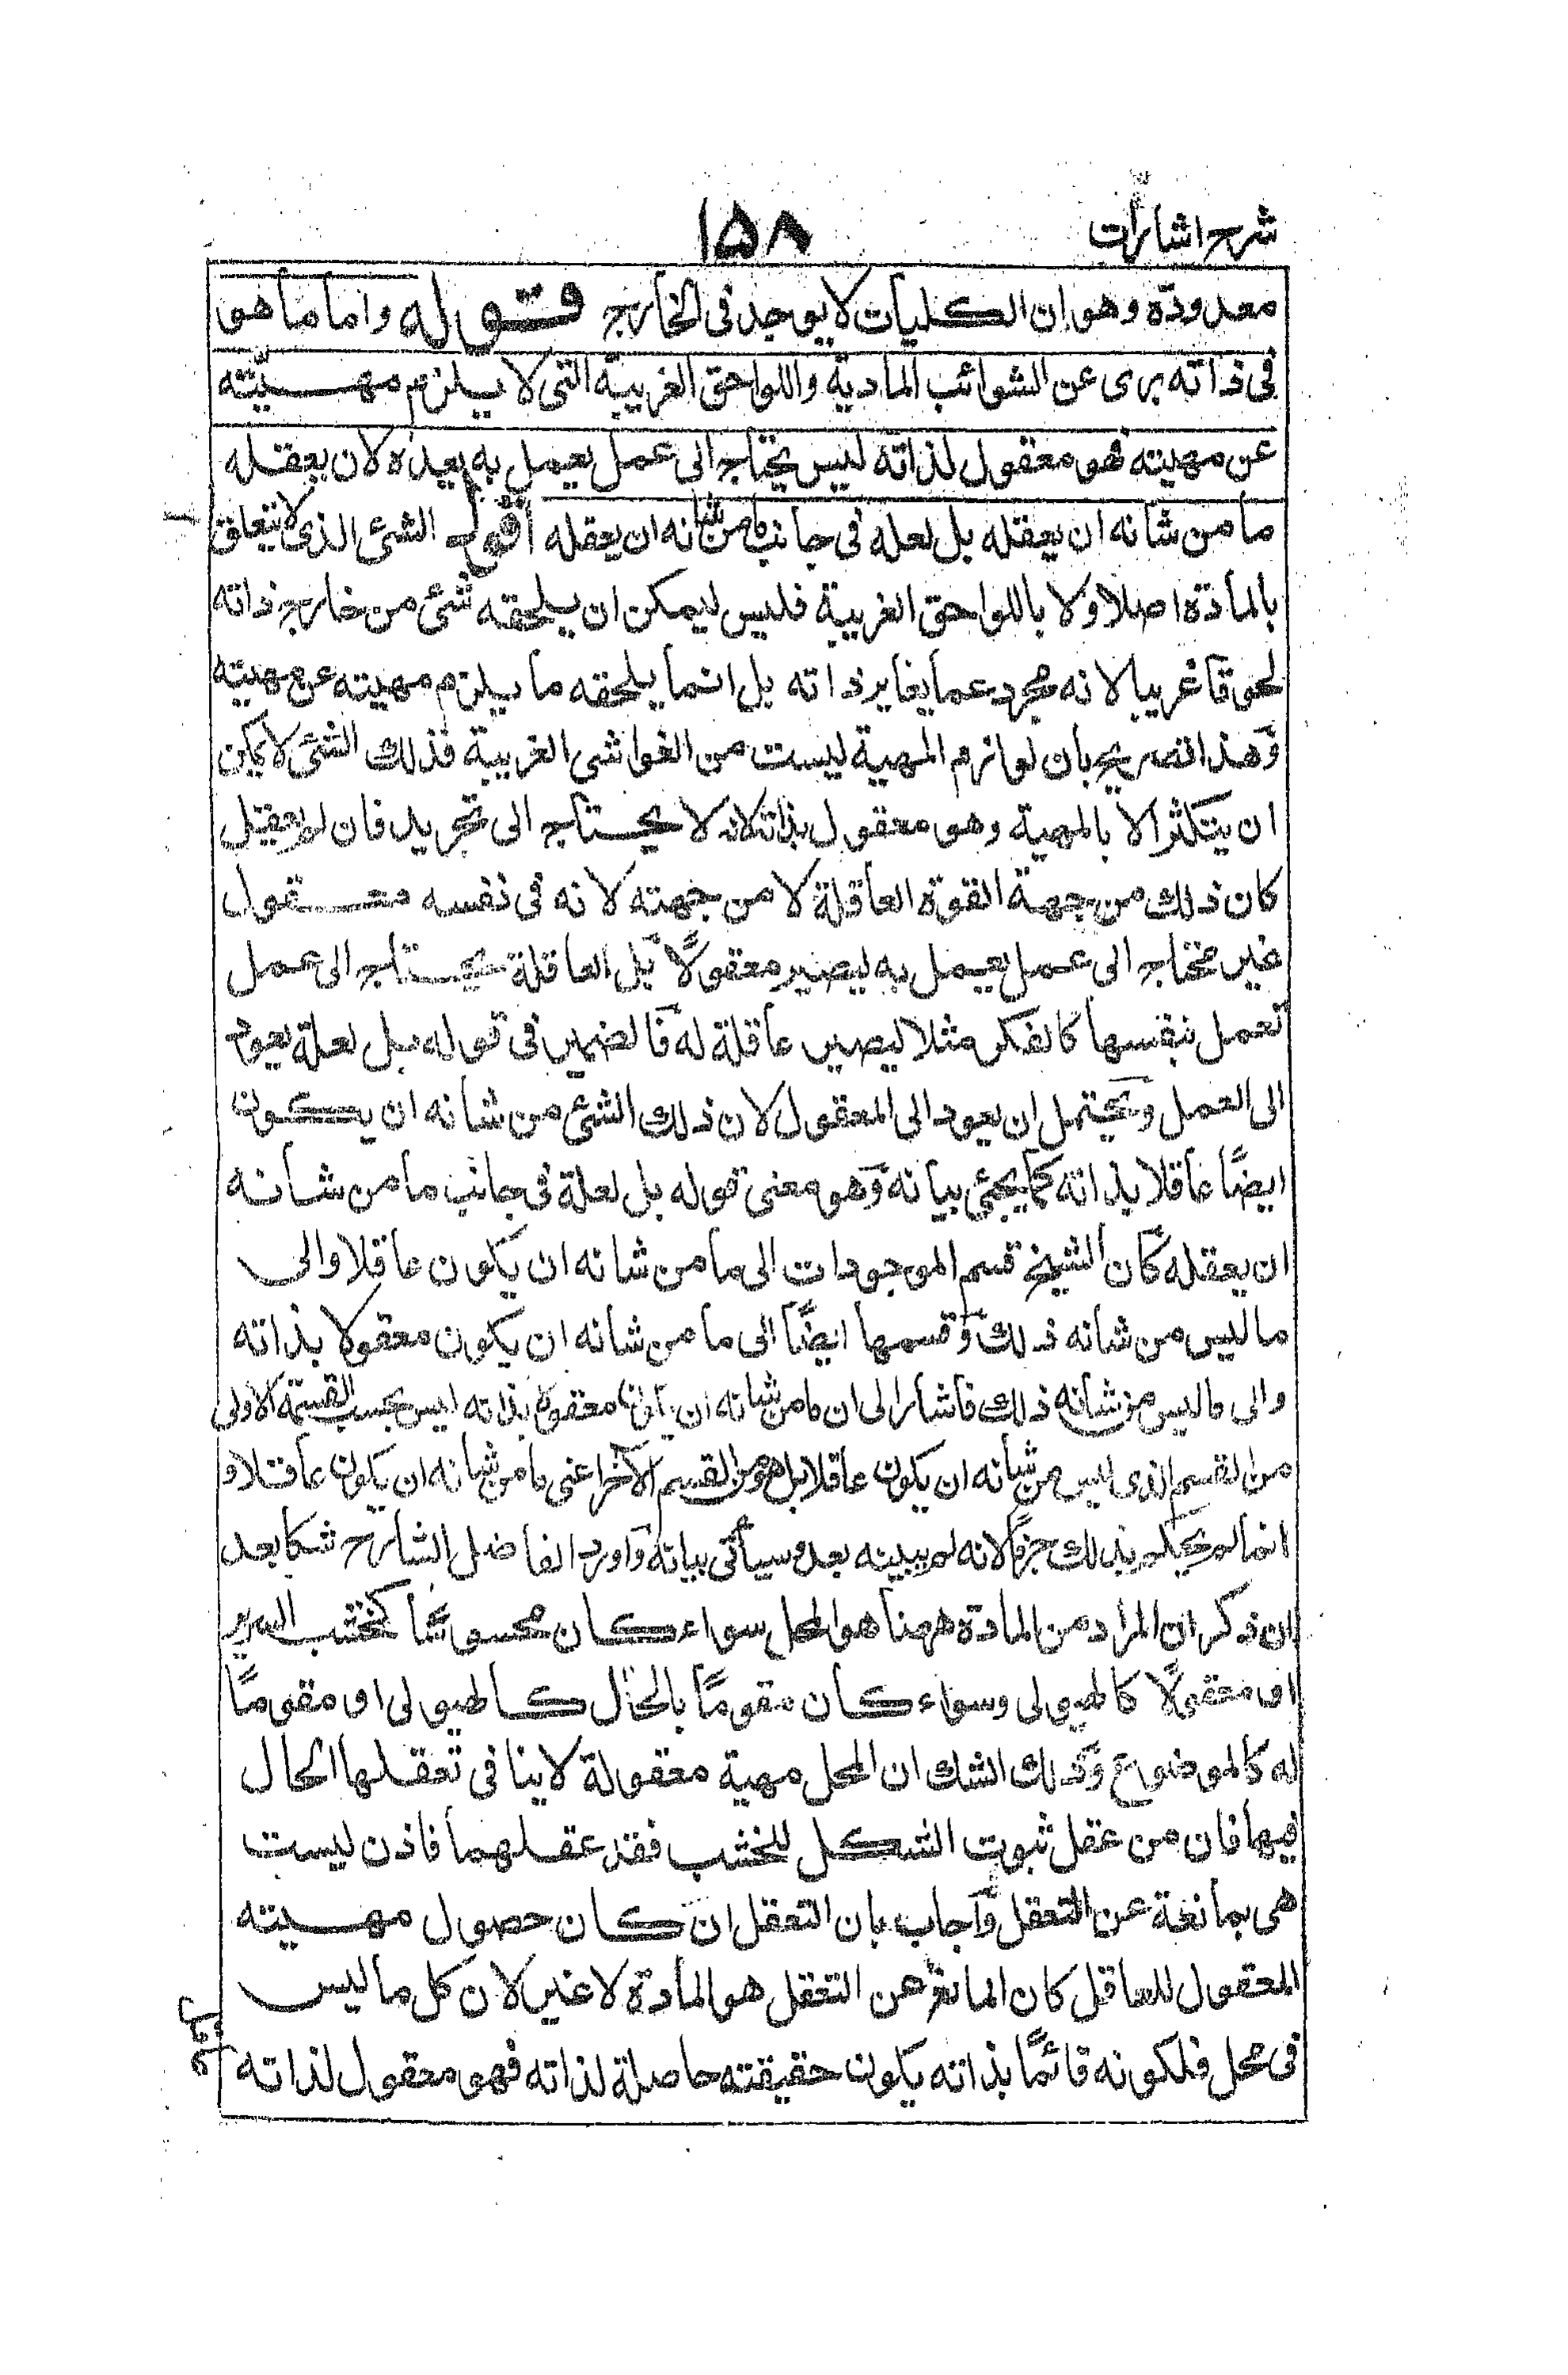 شرح اشارات
١٥٨
معدودة وهو ان الكليات لا يوجد فى الخارج قوله واما ما هو
فى ذاته برى عن الشوائب المادية واللواحق الغريبة التى لا يلزم مهيّته
عن مهيته فهو معقول لذاته ليس يحتاج الى عمل يعمل به يعدّه لان يعقله
ما من شانه ان يعقله بل لعله فى جانب ما من شانه ان يعقله اقول الشئ الذى لا يتعلق
بالمادة اصلا ولا باللواحق الغريبة فليس ليمكن ان يلحقه شئ من خارج ذاته
لحوقا غريبا لانه مجرد عما يغاير ذاته بل انما يلحقه ما يلزم مهيته عن مهيته
وهذا تصريح بان لوازم المهية ليست من الغواشى الغريبة فذلك الشئ لا يمكن
ان يتكثر الا بالمهية وهو معقول بذاته لانه لا يحتاج الى تجريد فان لم يعقل
كان ذلك من جهة القوة العاقلة لا من جهته لانه فى نفسه معقول
غير محتاج الى عمل يعمل به ليصير معقولًا بل العاقلة يحتاج الى عمل
تعمل بنفسها كالفكر مثلا ليصير عاقلة له فالضمير فى قوله بل لعلة يعود
الى العمل ويحتمل ان يعود الى المعقول لان ذلك الشئ من شانه ان يكون
ايضًا عاقلا بذاته كما يجئ بيانه وهو معنى قوله بل لعلة فى جانب ما من شانه
ان يعقله كان الشيخ قسم الموجودات الى ما من شانه ان يكون عاقلا والى
ما ليس من شانه ذلك وقسمها ايضًا الى ما من شانه ان يكون معقولا بذاته
والى ما ليس من شانه ذلك فاشار الى ان ما من شانه ان يكون معقولا بذاته ليس بحسب القسمة الاولى
من القسم الذى ليس من شانه ان يكون عاقلا بل هو من القسم الآخر اعنى ما من شانه ان يكون عاقلا و
انما لم يحكم بذلك جزمًا لانه لم يبينه بعد وسيأتى بيانه واورد الفاضل الشارح شكا بعد
ان ذكر ان المراد من المادة ههنا هو المحل سواء كان محسوسًا كخشب السرير
او معقولًا كالهيولى وسواء كان مقومًا بالحال كالهيولى او مقومًا
له كالموضوع وذلك الشك ان المحل مهية معقولة لا ينافى تعقلها الحال
فيها فان من عقل ثبوت الشكل للخشب فقد عقلهما فاذن ليست
هى بمانعة عن التعقل وآجاب بان التعقل ان كان حصول مهيته
المعقول للعاقل كان المانع عن التعقل هو المادة لا غير لان كل ما ليس
فى محل فلكونه قائمًا بذاته يكون حقيقته حاصلة لذاته فهو معقول لذاته